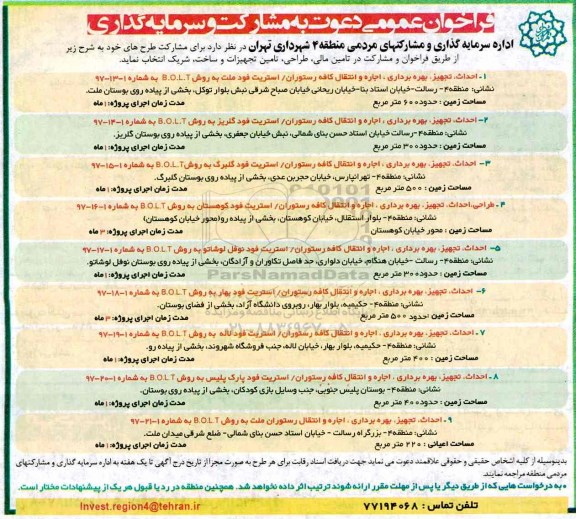 فراخوان عمومی دعوت به مشارکت و سرمایه گذاری
اداره سرمایه گذاری و مشارکتهای مردمی منطقه۴ شهرداری تهران در نظر دارد برای مشارکت طرح های خود به شرح زیر
از طریق فراخوان و مشارکت در تامین مالی، طراحی، تامین تجهیزات و ساخت، شریک انتخاب نماید.
۱- احداث، تجهیز، بهره برداری ، اجاره و انتقال کافه رستوران/ استریت فود ملت به روش B.O.L.T به شماره ۱-۱۳-۹۷
نشانی: منطقه۴- رسالت-خیابان استاد بنا-خیابان ریحانی خیابان صباح شرقی نبش بلوار توکل، بخشی از پیاده روی بوستان ملت.
مساحت زمین : حدود۶۰۰ متر مربع مدت زمان اجرای پروژه: ۱ماه
۲- احداث، تجهیز، بهره برداری ، اجاره و انتقال کافه رستوران/ استریت فود گلریز به روش B.O.L.T به شماره ۱-۱۴-۹۷
نشانی: منطقه۴-رسالت خیابان استاد حسن بنای شمالی، نبش خیابان جعفری، بخشی از پیاده روی بوستان گلریز.
مساحت زمین : حدود۳۰۰ متر مربع مدت زمان اجرای پروژه: ۱ماه
۳- احداث، تجهیز، بهره برداری ، اجاره و انتقال کافه رستوران/ استریت فود گلبرگ به روش B.O.L.T به شماره ۱-۱۵-۹۷
نشانی: منطقه۴- تهرانپارس، خیابان حجربن عدی، بخشی از پیاده روی بوستان گلبرگ.
مساحت زمین : ۵۰۰ متر مربع مدت زمان اجرای پروژه: ۱ماه
۴- طراحی،احداث، تجهیز، بهره برداری ، اجاره و انتقال کافه رستوران/ استریت فود کوهستان به روش B.O.L.T به شماره ۱-۱۶-۹۷
نشانی: منطقه۴- بلوار استقلال، خیابان کوهستان، بخشی از پیاده رو(محور خیابان کوهستان)
مساحت زمین : محور خیابان کوهستان مدت زمان اجرای پروژه: ۳ ماه
۵- احداث، تجهیز، بهره برداری ، اجاره و انتقال کافه رستوران/ استریت فود نوفل لوشاتو به روش B.O.L.T به شماره ۱-۱۷-۹۷
نشانی: منطقه۴- رسالت -خیابان هنگام، خیابان دلواری، حد فاصل تکاوران و آزادگان، بخشی از پیاده روی بوستان نوفل لوشاتو.
مساحت زمین : حدود۳۰۰ متر مربع مدت زمان اجرای پروژه: ۱ماه
ParsNamadData
۶- احداث، تجهیز، بهره برداری ، اجاره و انتقال کافه رستوران/ استریت فود بهار به روش B.O.L.T به شماره ۱-۱۸-۹۷
نشانی: منطقه۴- حکیمیه، بلوار بهار، روبروی دانشگاه آزاد، بخشی از فضای بوستان.
مساحت زمین :حدود ۵۰۰ متر مربع مدت زمان اجرای پروژه: ۳ ماه
۷- احداث، تجهیز، بهره برداری ، اجاره و انتقال کافه رستوران/ استریت فود لاله به روش B.O.L.T به شماره ۱-۱۹-۹۷
نشانی: منطقه۴- حکیمیه، بلوار بهار، خیابان لاله، جنب فروشگاه شهروند، بخشی از پیاده رو.
مساحت زمین : ۴۰۰ متر مربع مدت زمان اجرای پروژه: ۱ماه
۸- احداث، تجهیز، بهره برداری ، اجاره و انتقال کافه رستوران/ استریت فود پارک پلیس به روش B.O.L.T به شماره ۱-۲۰-۹۷
نشانی: منطقه۴- بوستان پلیس جنوبی، جنب وسایل بازی کودکان، بخشی از پیاده روی بوستان.
مساحت زمین : حدود۴۰۰ متر مربع مدت زمان اجرای پروژه: ۱ماه
۹- احداث، تجهیز، بهره برداری ، اجاره و انتقال رستوران ملت به روش B.O.L.T به شماره ۱-۲۱-۹۷
نشانی: منطقه۴- بزرگراه رسالت - خیابان استاد حسن بنای شمالی- ضلع شرقی میدان ملت.
مساحت اعیانی : ۲۲۰ متر مربع مدت زمان اجرای پروژه: ۱ماه
بدینوسیله از کلیه اشخاص حقیقی و حقوقی علاقمند دعوت می نماید جهت دریافت اسناد رقابت برای هر طرح به صورت مجزا از تاریخ درج آگهی تا یک هفته به اداره سرمایه گذاری و مشارکتهای
مردمی منطقه مراجعه نمایند.
*به درخواست هایی که از طریق دیگر یا پس از مهلت مقرر ارائه شوند ترتیب اثر داده نخواهد شد. همچنین منطقه در رد یا قبول هر یک از پیشنهادات مختار است.
تلفن تماس : ۷۷۱۹۴۰۶۸ Invest.region4@tehran.ir